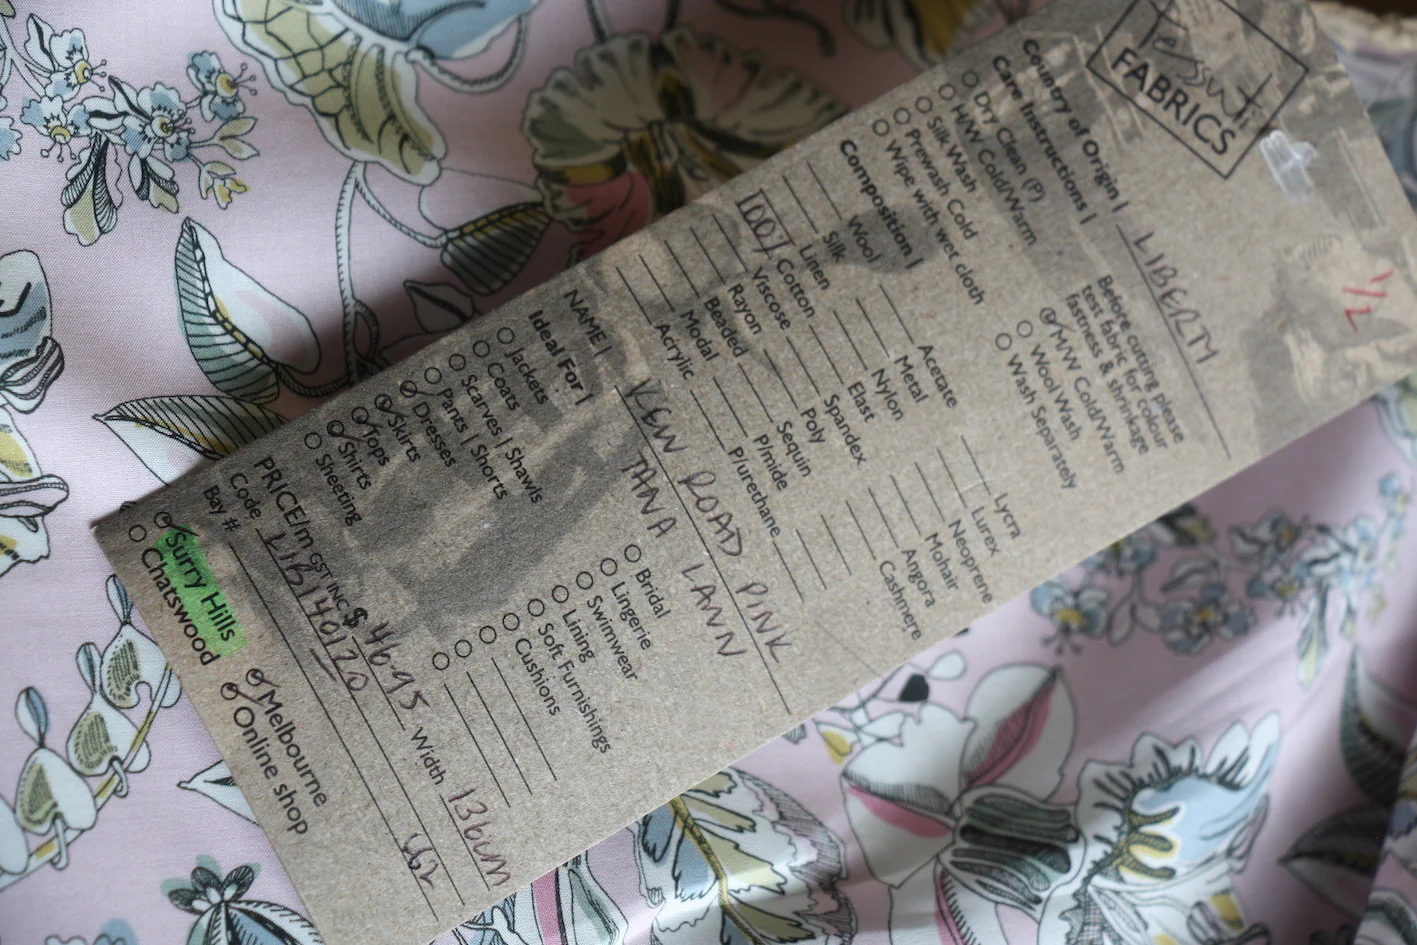 Tessuti
FABRICS
1/2
Country of Origin | LIBERTY
Care Instructions |
Before cutting please
test fabric for colour
fastness & shrinkage
Dry Clean (P)
H/W Cold/Warm
Silk Wash
Prewash Cold
Wipe with wet cloth
M/W Cold/Warm
Wool Wash
Wash Separately
Composition |
Wool
Silk
Linen
100% Cotton
Viscose
Rayon
Beaded
Modal
Acrylic
Acetate
Metal
Nylon
Elast
Spandex
Poly
Sequin
P/mide
P/urethane
Lycra
Lurex
Neoprene
Mohair
Angora
Cashmere
NAME | KEW ROAD PINK
TANA LAWN
Ideal For |
Jackets
Coats
Scarves | Shawls
Pants | Shorts
Dresses
Skirts
Tops
Shirts
Sheeting
Bridal
Lingerie
Swimwear
Lining
Soft Furnishings
Cushions
PRICE/m GST INC $ 46.95 Width 136cm
Code LIB140120
Bay #
Surry Hills
Chatswood
Melbourne
Online shop